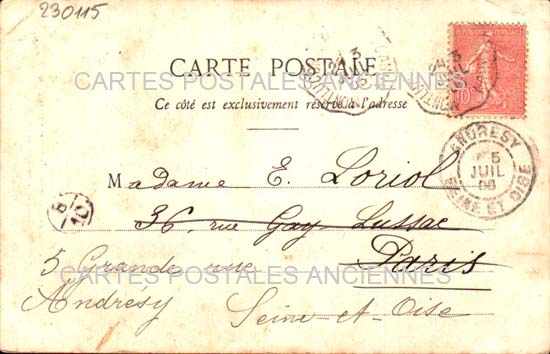 230115
CARTE POSTALE
CARTES POSTALES ANCIENNES
Ce côté est exclusivement réservé à l'adresse
10
ANDRESY
5
JUIL
SEINE ET OISE
Madame E. Loriol
36, rue Gay Lussac
Paris
8
10
5 Grande rue
CARTES POSTALES ANCIENNES
Andrésy Seine-et-Oise
CARTES POSTALES ANCIENNES